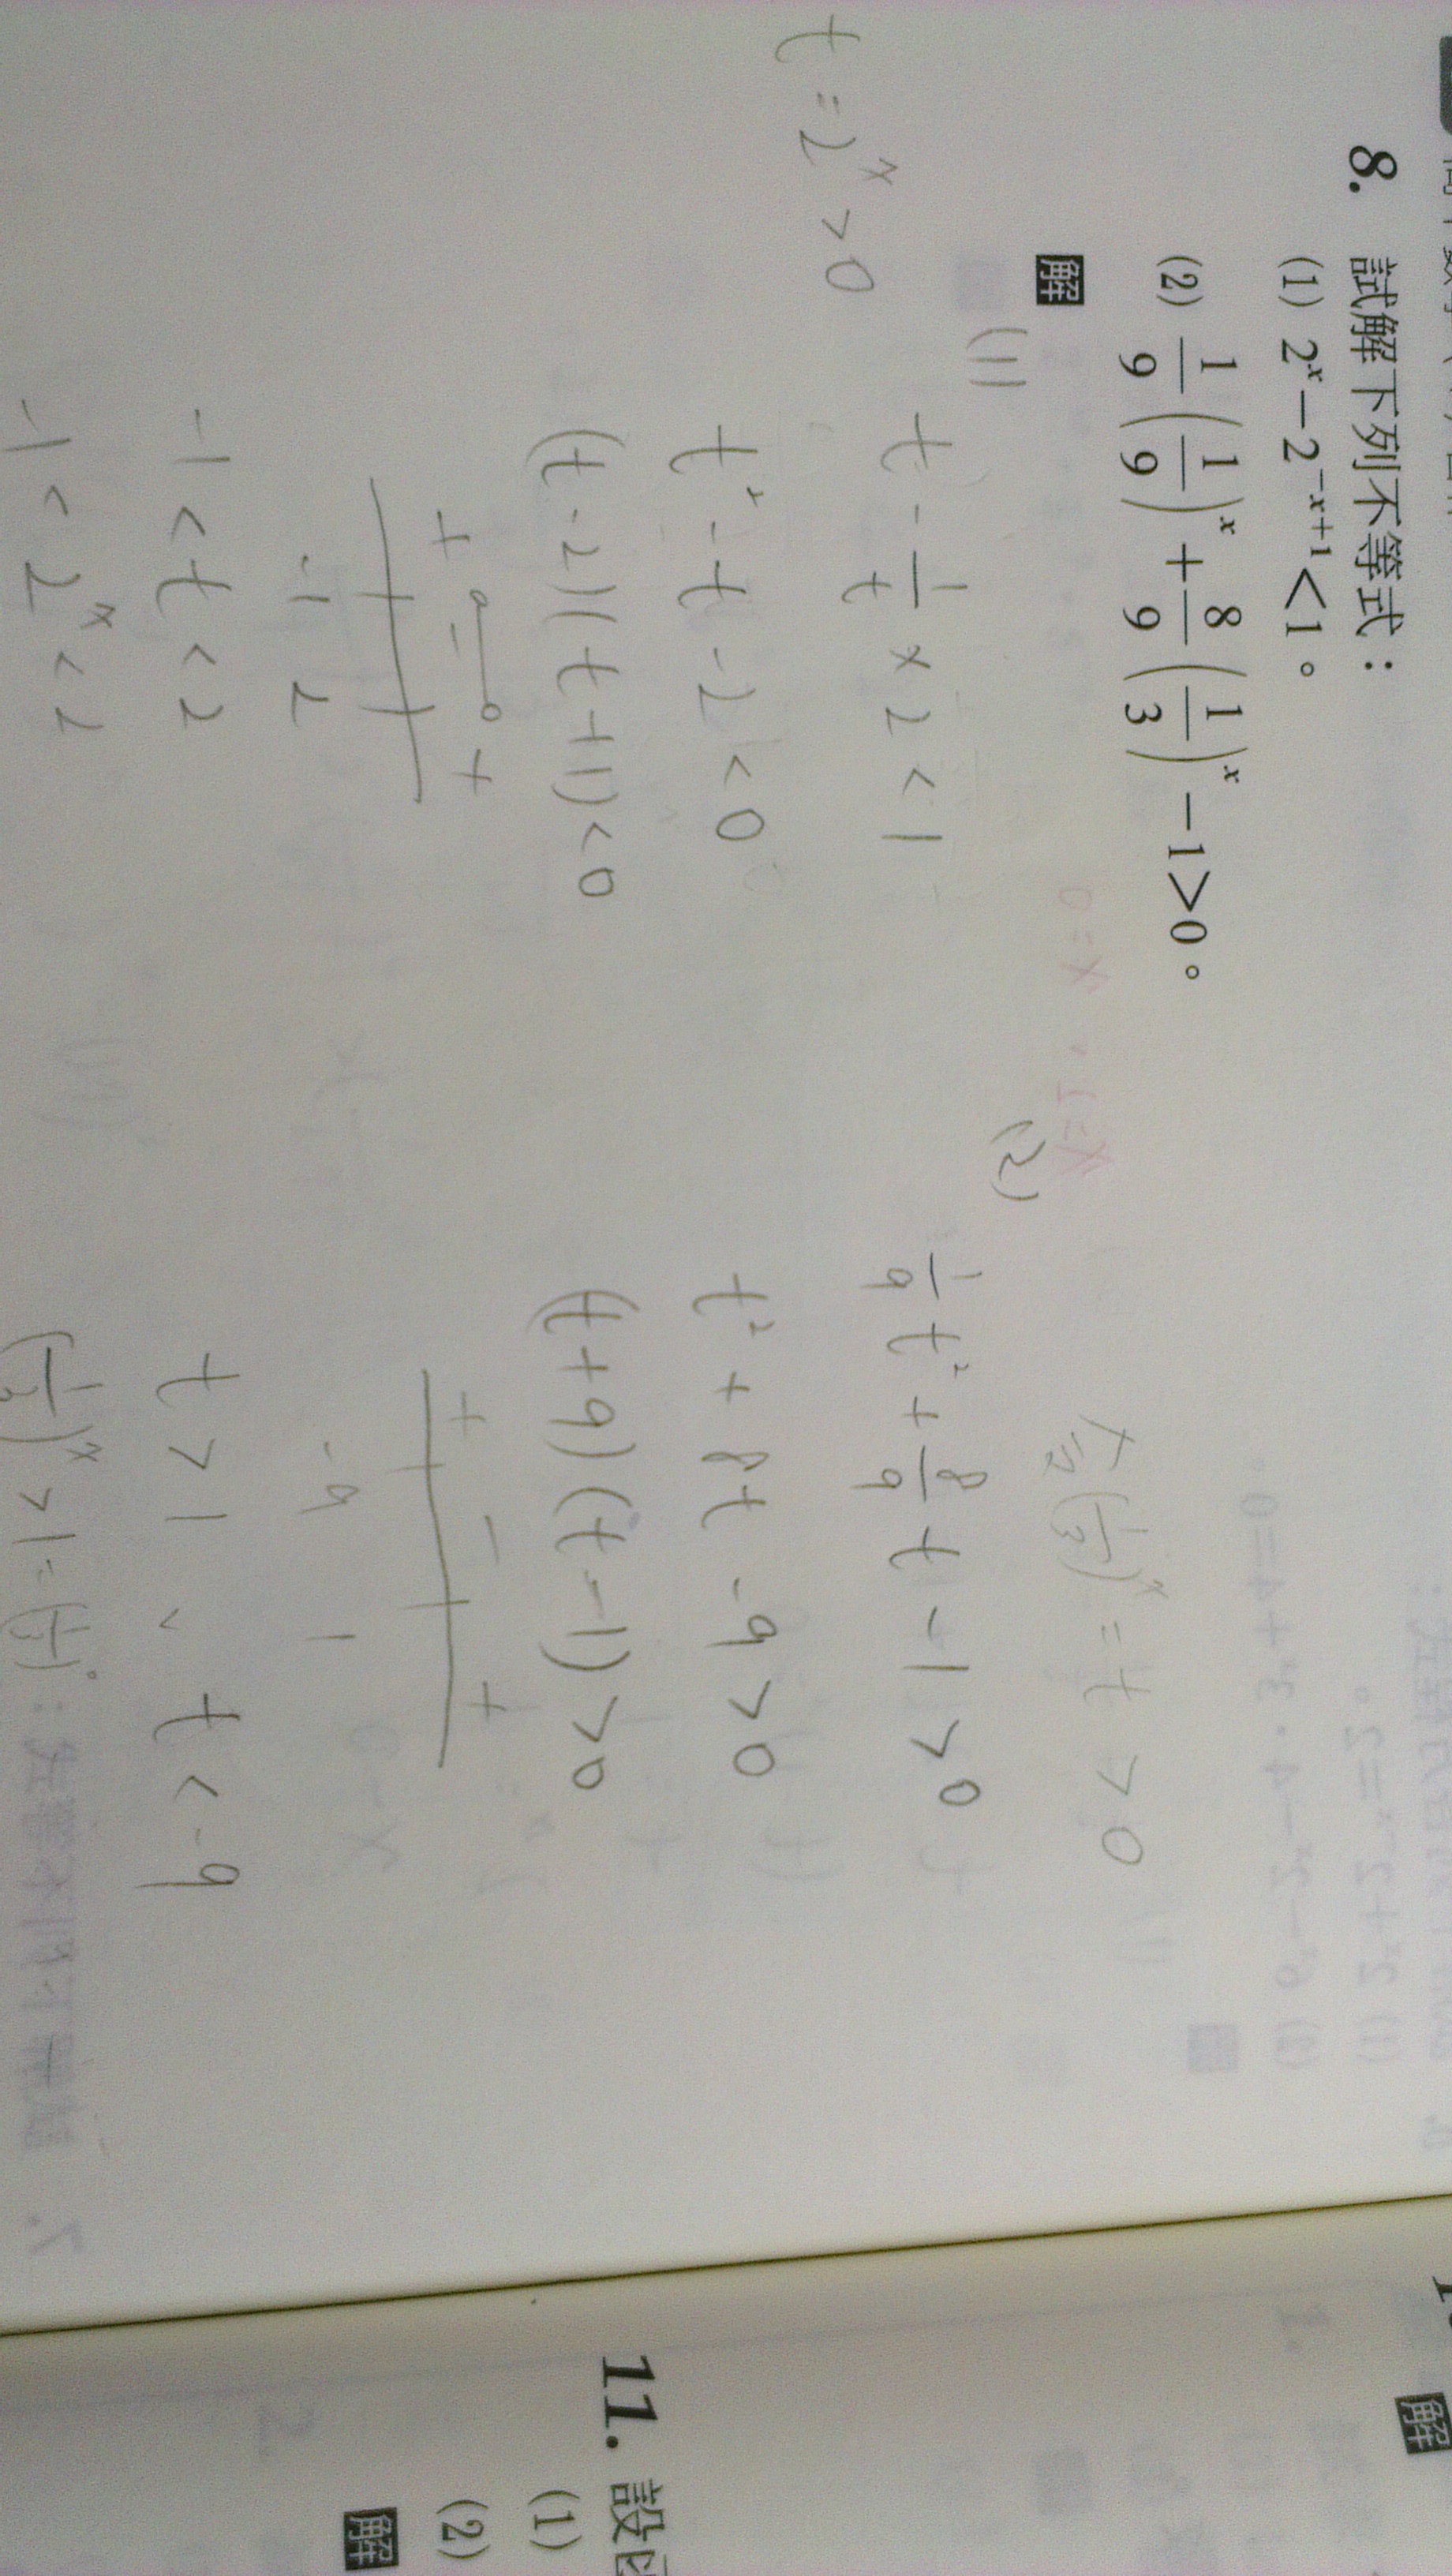 8. 試解下列不等式：
(1) 2^x－2^{-x+1}<1。
(2) \frac{1}{9}(\frac{1}{9})^x+\frac{8}{9}(\frac{1}{3})^x－1>0。
解
t=2^x>0
(1)
t-\frac{1}{t}×2<1
t²-t-2<0
(t-2)(t+1)<0
+ - +
-1 2
-1<t<2
-1<2^x<2
(2)
(\frac{1}{3})^x=t>0
\frac{1}{9}t²+\frac{8}{9}t-1>0
t²+8t-9>0
(t+9)(t-1)>0
+ - +
-9 1
t>1、t<-9
(\frac{1}{3})^x>1=(\frac{1}{3})^0
解
11. 設
(1)
(2)
解